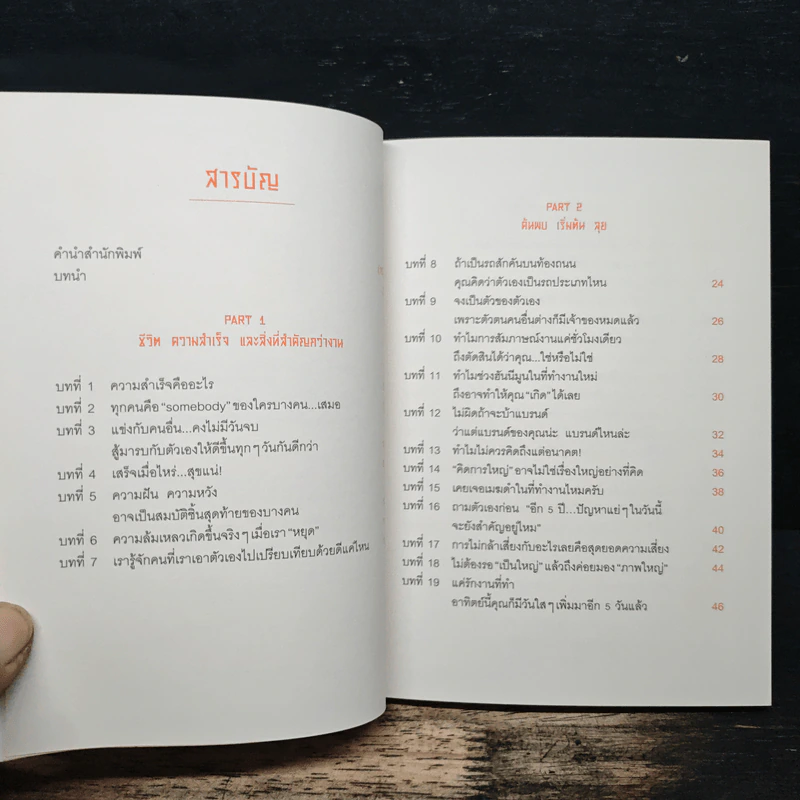 สารบัญ
คำนำสำนักพิมพ์
บทนำ
PART 1
ชีวิต ความสำเร็จ และสิ่งที่สำคัญกว่างาน
บทที่ 1 ความสำเร็จคืออะไร
บทที่ 2 ทุกคนคือ “somebody” ของใครบางคน...เสมอ
บทที่ 3 แข่งกับคนอื่น...คงไม่มีวันจบ
สู้มารบกับตัวเองให้ดีขึ้นทุกๆ วันกันดีกว่า
บทที่ 4 เสร็จเมื่อไหร่...สุขแน่!
บทที่ 5 ความฝัน ความหวัง
อาจเป็นสมบัติชิ้นสุดท้ายของบางคน
บทที่ 6 ความล้มเหลวเกิดขึ้นจริงๆ เมื่อเรา “หยุด”
บทที่ 7 เรารู้จักคนที่เราเอาตัวเองไปเปรียบเทียบด้วยดีแค่ไหน
PART 2
ค้นพบ เริ่มต้น ลุย
บทที่ 8 ถ้าเป็นรถสักคันบนท้องถนน
คุณคิดว่าตัวเองเป็นรถประเภทไหน 24
บทที่ 9 จงเป็นตัวของตัวเอง
เพราะตัวตนคนอื่นต่างก็มีเจ้าของหมดแล้ว 26
บทที่ 10 ทำไมการสัมภาษณ์งานแค่ชั่วโมงเดียว
ถึงตัดสินได้ว่าคุณ...ใช่หรือไม่ใช่ 28
บทที่ 11 ทำไมช่วงฮันนีมูนในที่ทำงานใหม่
ถึงอาจทำให้คุณ “เกิด” ได้เลย 30
บทที่ 12 ไม่ผิดถ้าจะบ้าแบรนด์
ว่าแต่แบรนด์ของคุณน่ะ แบรนด์ไหนล่ะ 32
บทที่ 13 ทำไมไม่ควรคิดถึงแต่อนาคต! 34
บทที่ 14 “คิดการใหญ่” อาจไม่ใช่เรื่องใหญ่อย่างที่คิด 36
บทที่ 15 เคยเจอเมฆดำในที่ทำงานไหมครับ 38
บทที่ 16 ถามตัวเองก่อน “อีก 5 ปี...ปัญหาแย่ๆ ในวันนี้
จะยังสำคัญอยู่ไหม” 40
บทที่ 17 การไม่กล้าเสี่ยงกับอะไรเลยคือสุดยอดความเสี่ยง 42
บทที่ 18 ไม่ต้องรอ “เป็นใหญ่” แล้วถึงค่อยมอง “ภาพใหญ่” 44
บทที่ 19 แค่รักงานที่ทำ
อาทิตย์นี้คุณก็มีวันใสๆ เพิ่มมาอีก 5 วันแล้ว 46